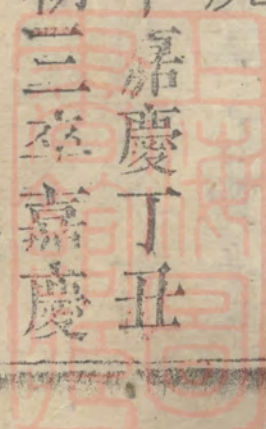 嘉慶丁丑
三卒嘉慶